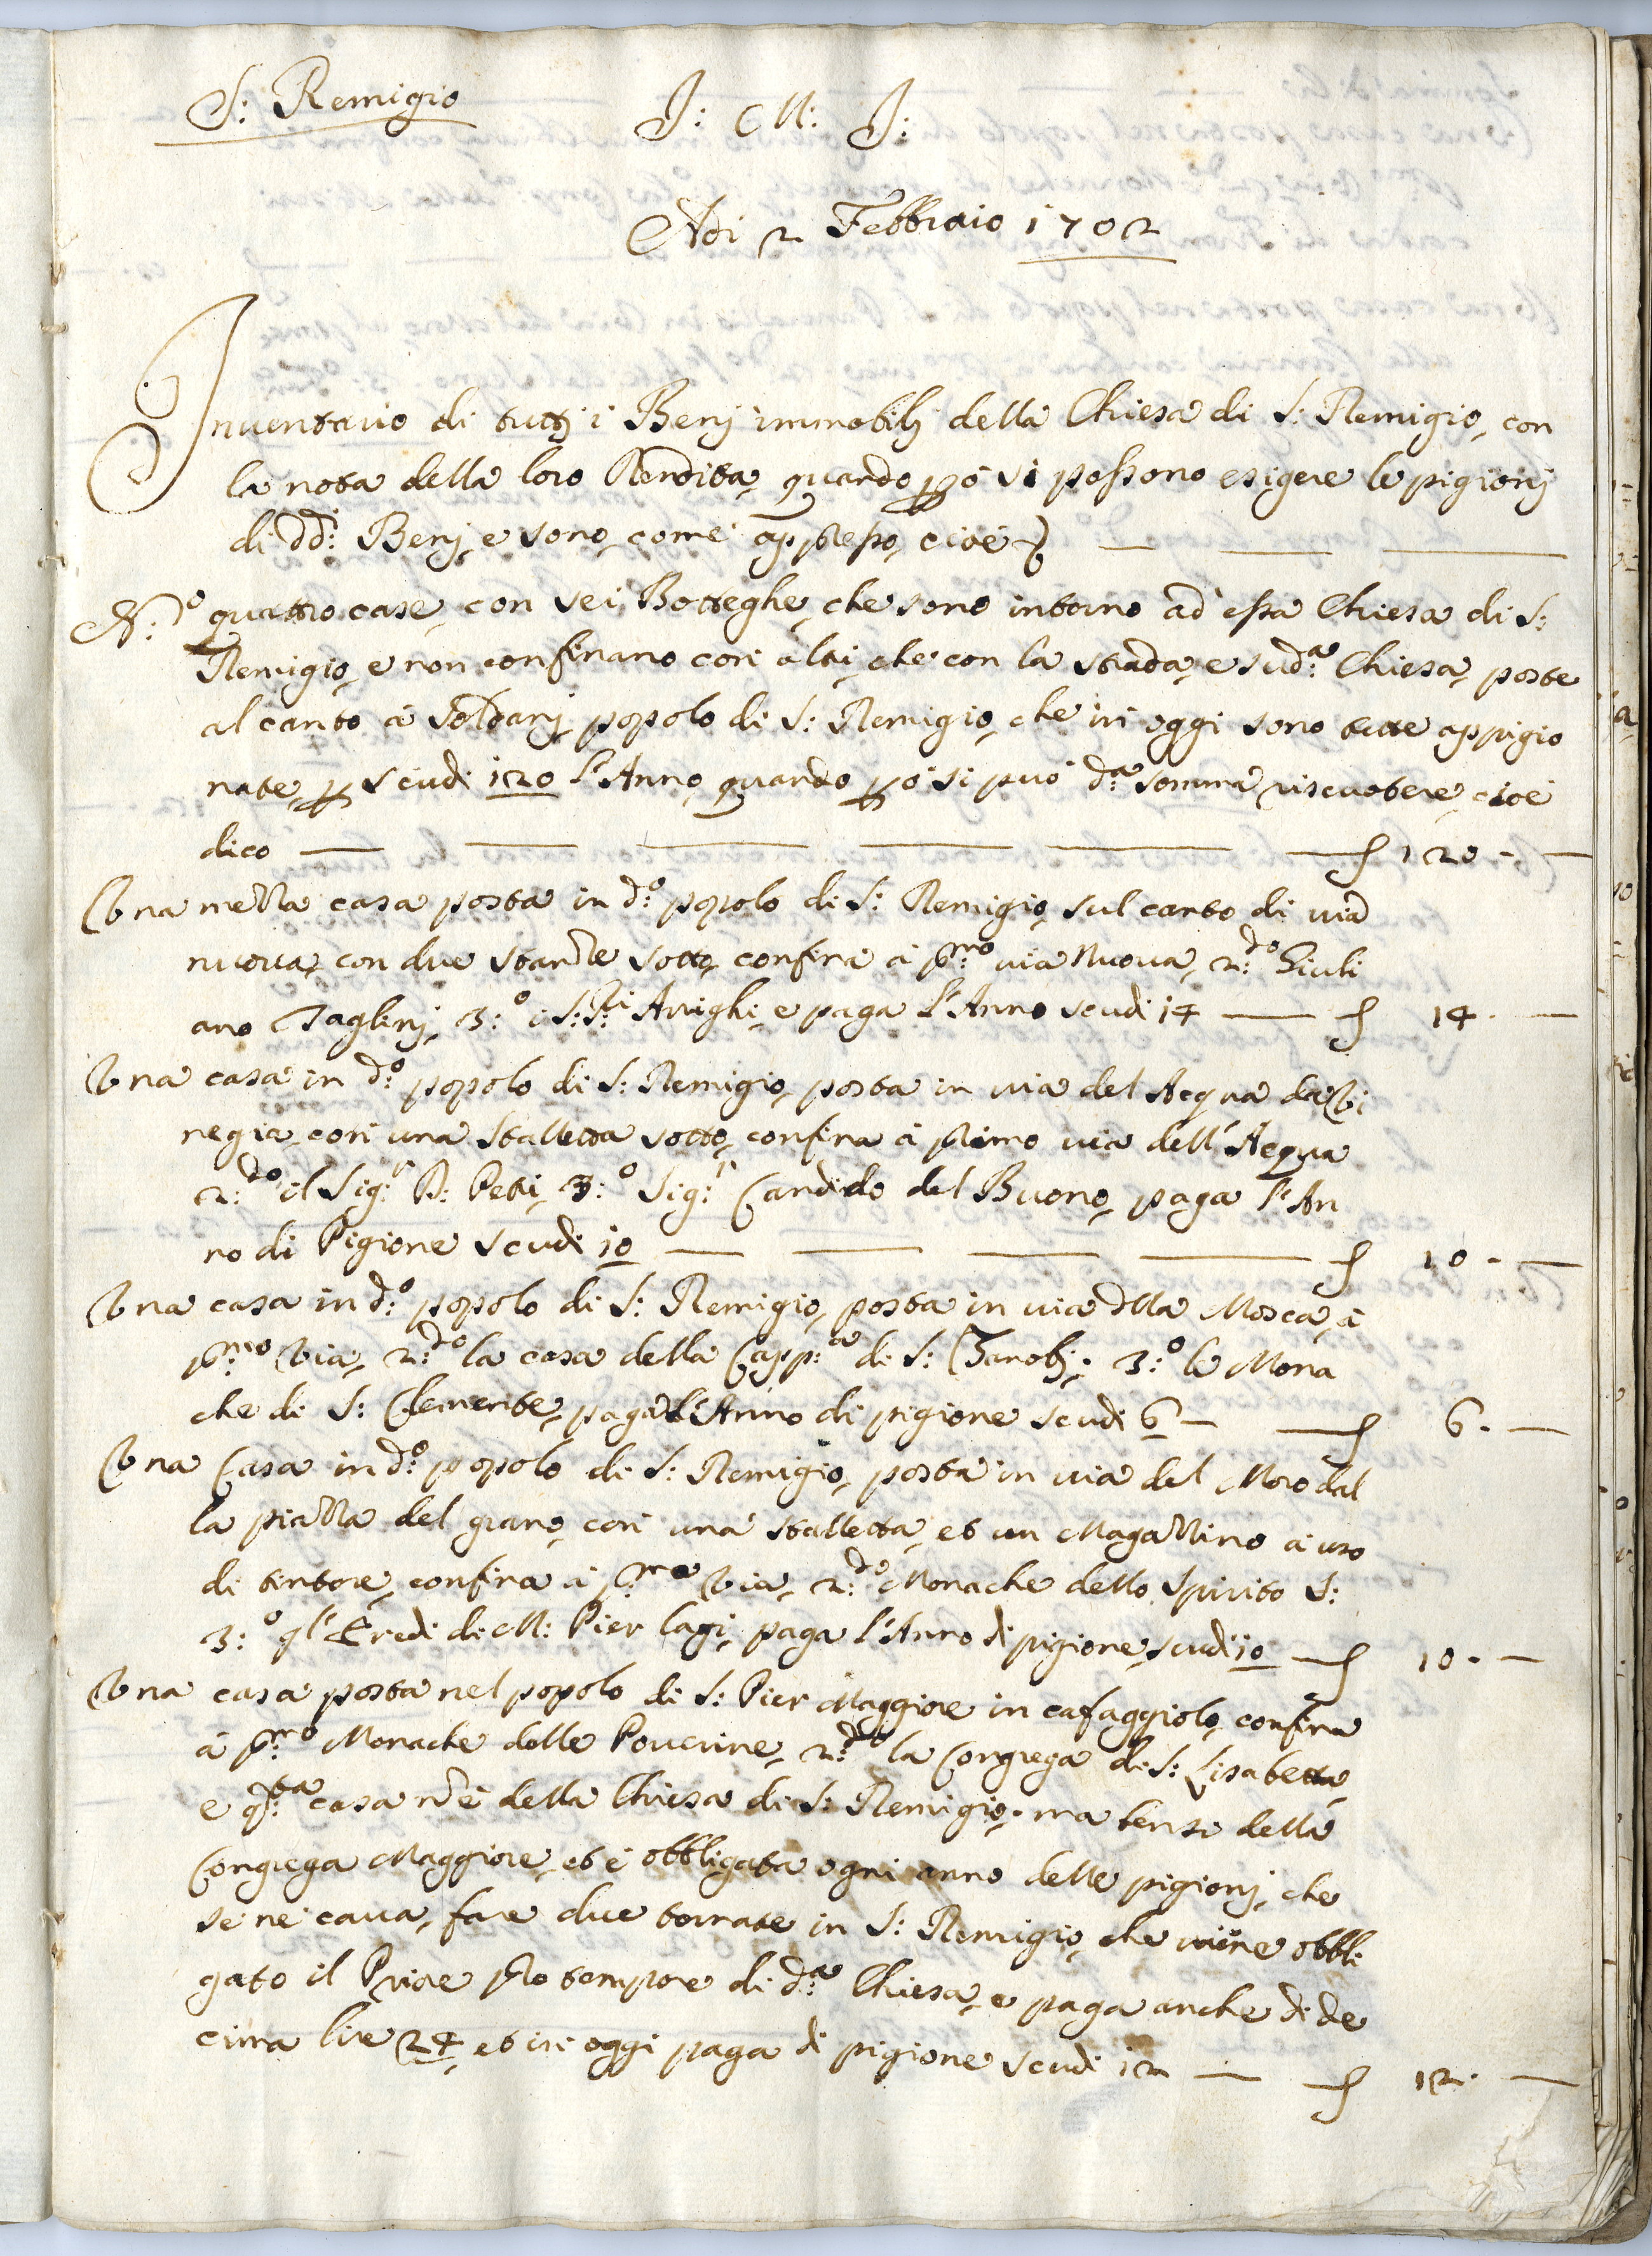 S: Remigio
J: M: J:
Adi 2 Febbraio 1702
Inventario di tuttj i Benj immobilj della Chiesa di S: Remigio, con
la nota della loro Rendita, quando però si possono esigere le pigionj
di dd: Benj, e sono, come appresso, cioè
N:o quattro case, con sei Botteghe, che sono intorno ad essa Chiesa di S:
Remigio, e non confinano con altri, che con la strada, e sud:a Chiesa, poste
al canto à Soldanj, popolo di S: Remigio, che in oggi sono tutte appigio
nate, p scudi 120 l'Anno, quando però si può d:a somma riscuotere, cioè
dico 120 -
Una mezza casa posta in d:o popolo di S: Remigio, sul canto di via
nuova, con due stanze sotto, confina à p:mo via Nuova, 2:do Giuli
ano Taglinj, 3:o i S:S:ri Arrighi, e paga l'Anno scudi 14 14 -
Una casa in d:o popolo di S: Remigio, posta in via del Acqua da Vi
negia, con una stalletta sotto, confina à primo via dell'Acqua
2:do il Sig:r P: Petri, 3:o Sig:r Candido del Buono, paga l'An
no di Pigione scudi 10 10 -
Una casa in d:o popolo di S: Remigio, posta in via della Mosca, à
p:mo Via, 2:do la casa della Capp:a di S: Zanobj, 3:o le Mona
che di S: Clemente, paga l'Anno di pigione scudi 6 6 -
Una Casa in d:o popolo di S: Remigio, posta in via del Moro dal
la piazza del grano, con una stalletta, et un Magazzino à uso
di tintore, confina à p:mo Via, 2:do Monache dello Spirito S:
3:o gl'Eredi di M: Pier Lagi, paga l'Anno di pigione, scudi 10 10 -
Una casa posta nel popolo di S: Pier Maggiore in cafaggiolo, confina
à p:mo Monache delle Poverine, 2:do la Congrega di S: Lisabetta,
e q:ta casa n è della Chiesa di S: Remigio, ma bensi della
Congrega Maggiore, et è obbligata ogni anno delle pigionj, che
se ne cava, fare due tornate in S: Remigio, che viene obbli
gato il Priore pro tempore di d:a Chiesa, e paga anche di de
cima lire 24, et in oggi paga di pigione scudi 12 12 -